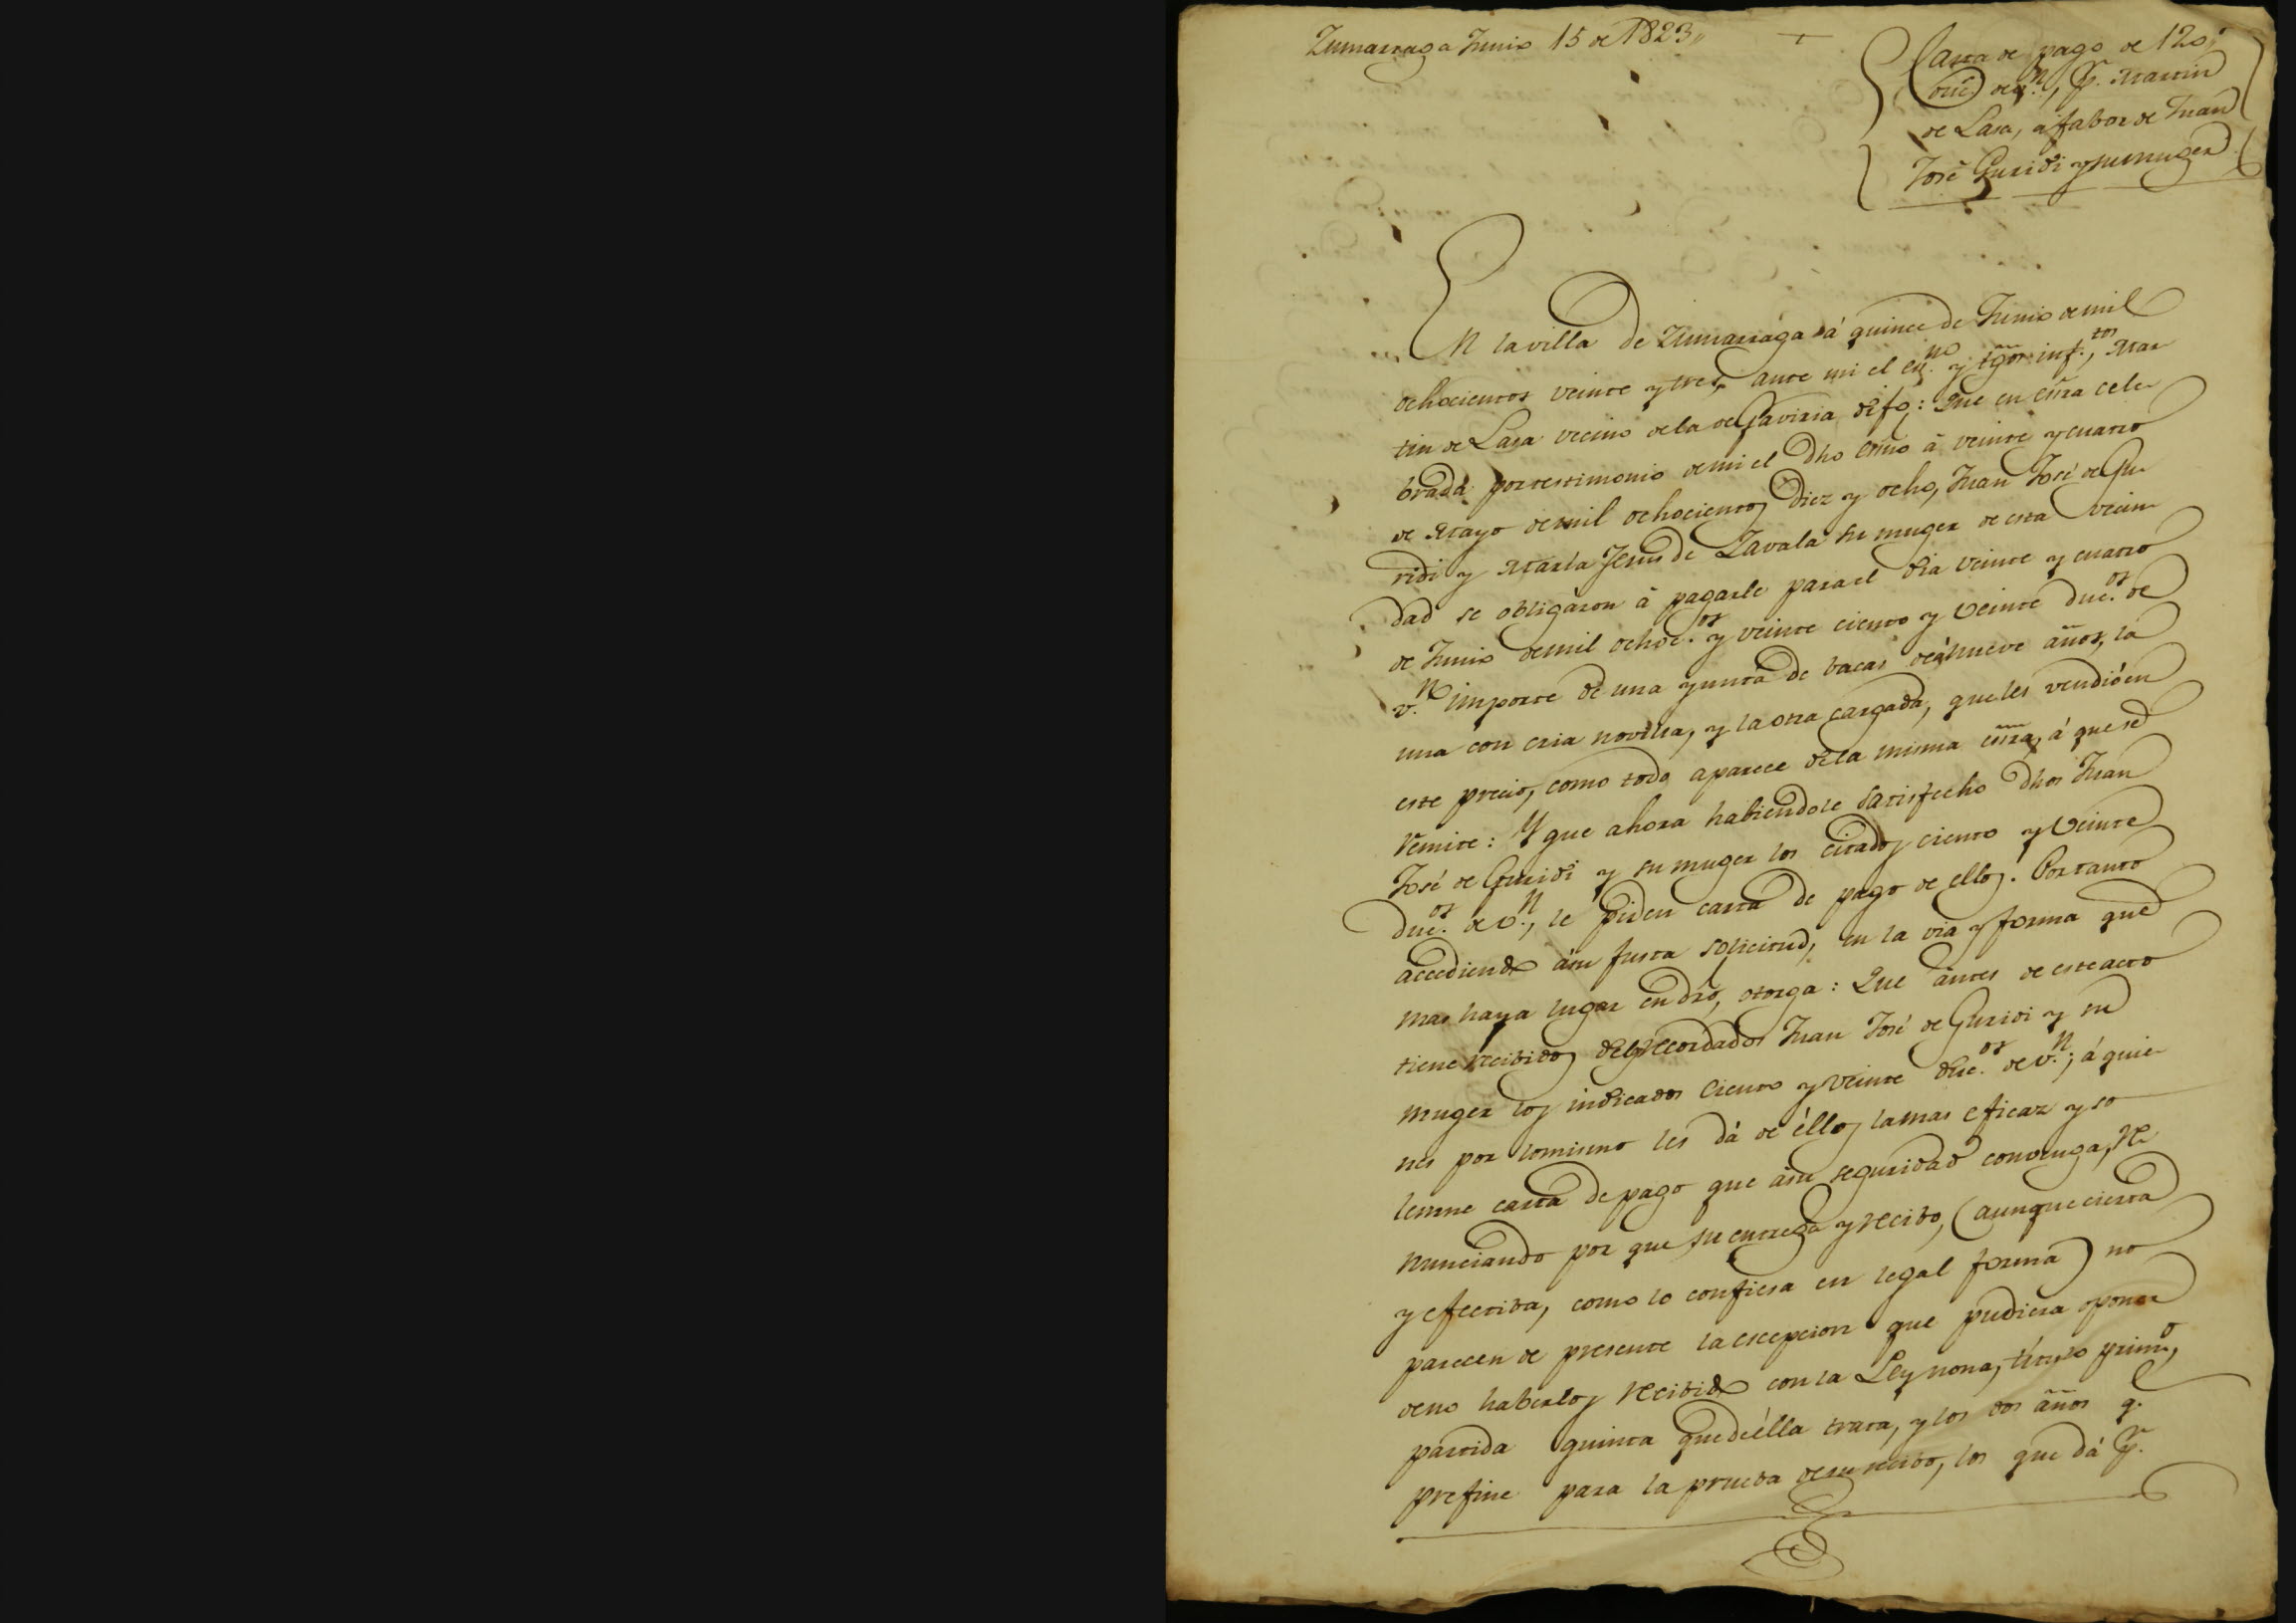 Zumarraga Junio 15 de 1823,,
Carta de pago de 120,,
duc.s de v.n, p.r Martin
de Lasa, á fabor de Juan
José Guridi y su muger
En la villa de Zumarraga á quince de Junio de mil
ochocientos veinte y tres, ante mi el esn.no y tgos inf.tos, Mar
tin de Lasa vecino de la de Gaviria dijo: Que en esrra cele
brada por testimonio de mi el dho esnno á veinte y cuatro
de Mayo de mil ochocientos diez y ocho, Juan José de Gu
ridi y Maria Jesus de Zavala su muger de esta vecin
dad se obligaron á pagarle para el dia veinte y cuatro
de Junio de mil ochoc.os y veinte ciento y veinte duc.os de
v.n importe de una yunta de bacas de á nueve años, la
una con cria novilla, y la otra cargada, que les vendió en
este precio, como todo aparece de la misma esrra, á que se
remite: Y que ahora habiendole satisfecho dhos Juan
José de Guridi y su muger los citados ciento y veinte
duc.os de v.n, le piden carta de pago de ellos. Por tanto
accediendo á su justa solicitud, en la via y forma que
mas haya lugar en dro, otorga: Que ántes de este acto
tiene recibidos de los recordados Juan José de Guridi y su
muger los indicados ciento y veinte duc.os de v.n; á quie
nes por lo mismo les dá de éllos la mas eficaz y so
lemne carta de pago que á su seguridad convenga, re
nunciando por que su entrega y recibo, (aunque cierta
y efectiva, como lo confiesa en legal forma) no
parecen de presente la escepcion que pudiera oponer
de no haberlos recibido con la Ley nona, título prim.o,
partida quinta que de élla trata, y los dos años q.e
prefine para la prueba de su recibo, los que dá p.r